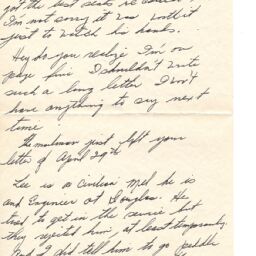 got the best seats
I'm not sorry it was worth it
just to watch his hands.
Hey do you realize I'm on
page five I shouldn't write
such a long letter I won't
have anything to say next
time.
The mailman just left your
letter of April 29th
Lee is a civilian Mel he is
and Engineer at Douglas. He
tried to get in the service but
they rejected him at least temporarily.
And I did tell him to go peddle